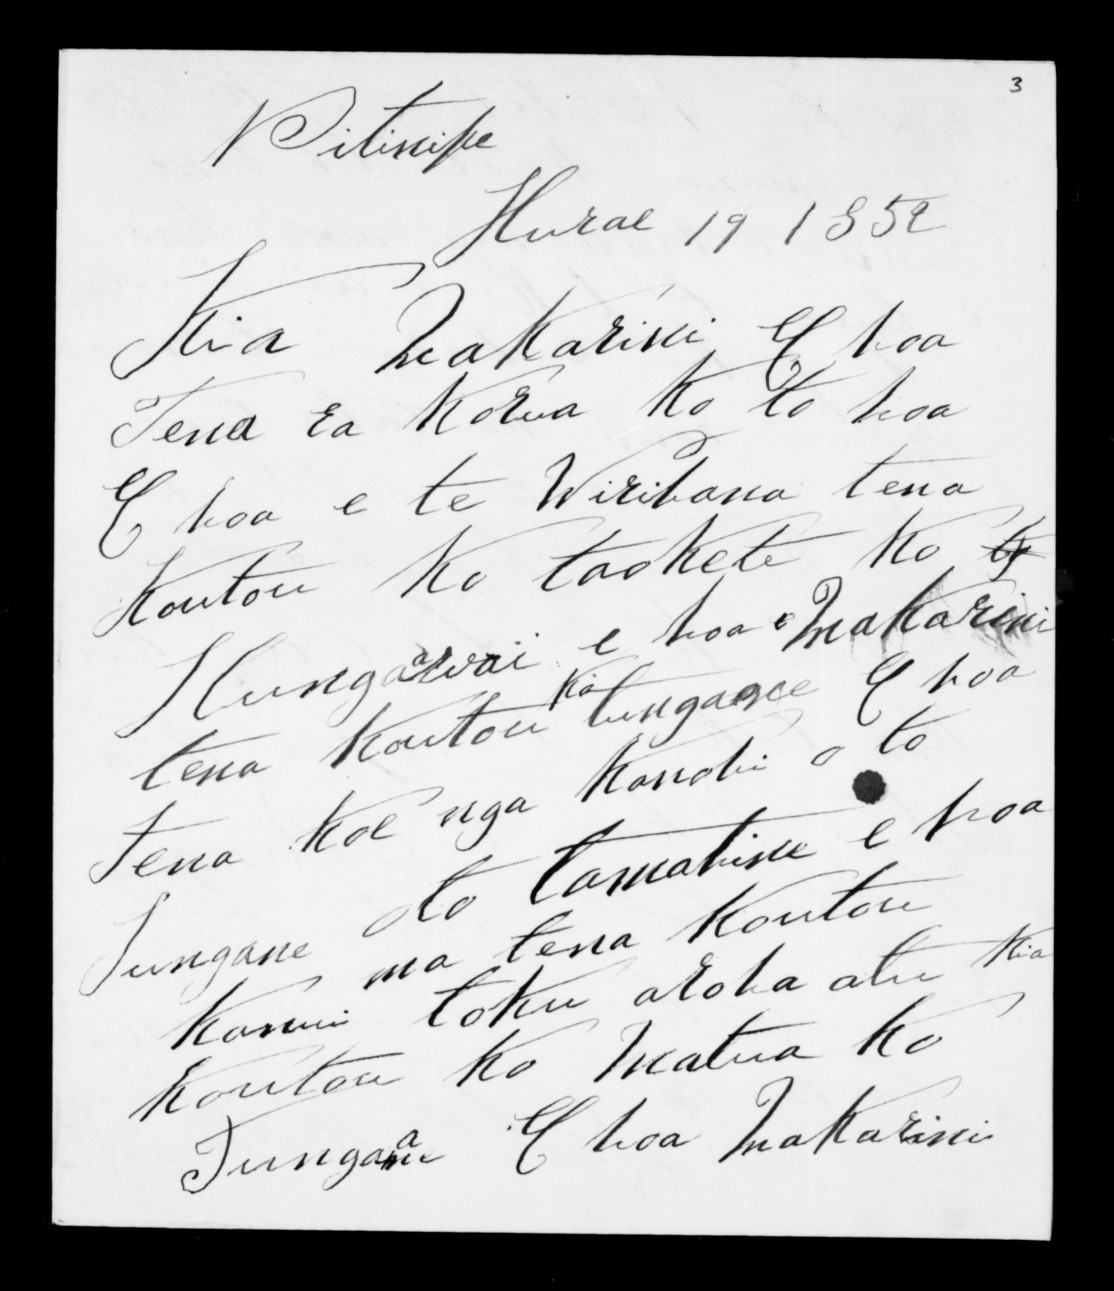 3
Pitinipe
Hurae 19 1852
Kia Makarini E hoa
Tena ra korua ko to hoa
E hoa e te Wirihana tena
koutou ko taokete ko
Hungawai e hoa e Makarini
tena koutou kia tungane E hoa
Tena koe nga kanohi o to
Tungane o to tamahine e hoa
ma tena koutou
kanui toku aroha atu kia
koutou ko Matua ko
Tungane E hoa Makarini